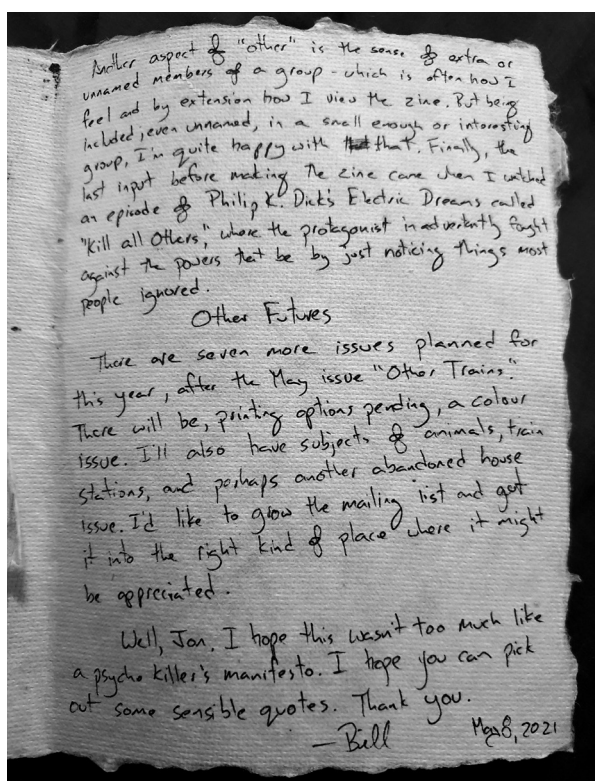 Another aspect of "other" is the sense of extra or
unnamed members of a group - which is often how I
feel and by extension how I view the zine. But being
included, even unnamed, in a small enough or interesting
group, I'm quite happy with that. Finally, the
last input before making the zine came when I watched
an episode of Philip K. Dick's Electric Dreams called
"Kill all Others," where the protagonist inadvertently fought
against the powers that be by just noticing things most
people ignored.
Other Futures
There are seven more issues planned for
this year, after the May issue "Other Trains".
There will be, printing options pending, a colour
issue. I'll also have subjects of animals, train
stations, and perhaps another abandoned house
issue. I'd like to grow the mailing list and get
it into the right kind of place where it might
be appreciated.
Well, Jon, I hope this wasn't too much like
a psycho killer's manifesto. I hope you can pick
out some sensible quotes. Thank you.
—Bill
May 8, 2021